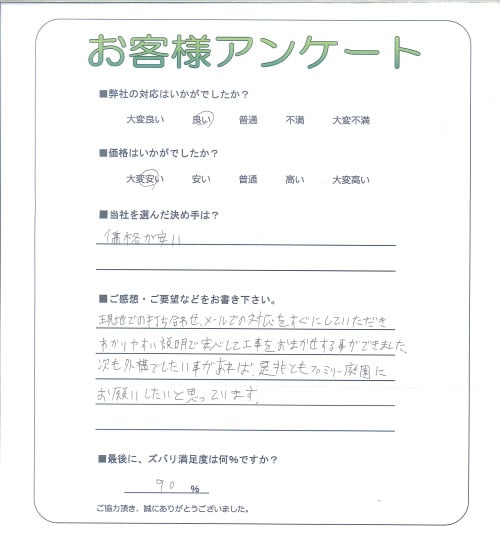 お客様アンケート
■弊社の対応はいかがでしたか？
大変良い 良い 普通 不満 大変不満
■価格はいかがでしたか？
大変安い 安い 普通 高い 大変高い
■当社を選んだ決め手は？
価格が安い
■ご感想・ご要望などをお書き下さい。
現地での打ち合わせ、メールでの対応をすぐにしていただき
わかりやすい説明で安心して工事をおまかせする事ができました。
次も外構でしたい事があれば、是非ともファミリー庭園に
お願いしたいと思っています。
■最後に、ズバリ満足度は何%ですか？
90 %
ご協力頂き、誠にありがとうございました。